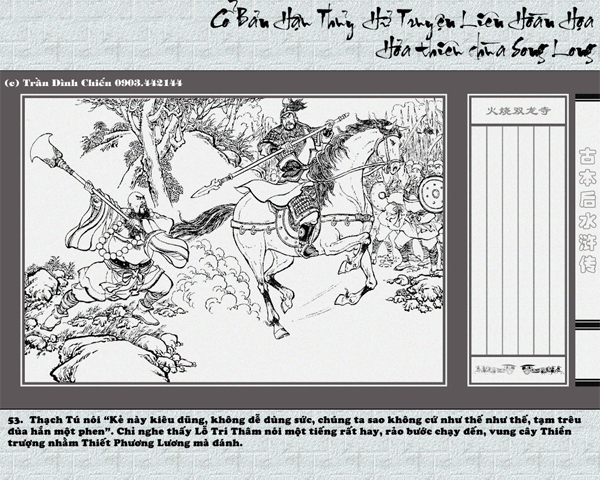 Cổ Bản Hậu Thủy Hử Truyện Liên Hoàn Họa
Hỏa thiên chùa Song Long
(c) Trần Đình Chiến 0903.442144
火烧双龙寺
古本后水浒传
53. Thạch Tú nói “Kẻ này kiêu dũng, không dễ dùng sức, chúng ta sao không cứ như thế như thế, tạm trêu
đùa hắn một phen”. Chỉ nghe thấy Lỗ Trí Thâm nói một tiếng rất hay, rảo bước chạy đến, vung cây Thiền
trượng nhằm Thiết Phương Lương mà đánh.